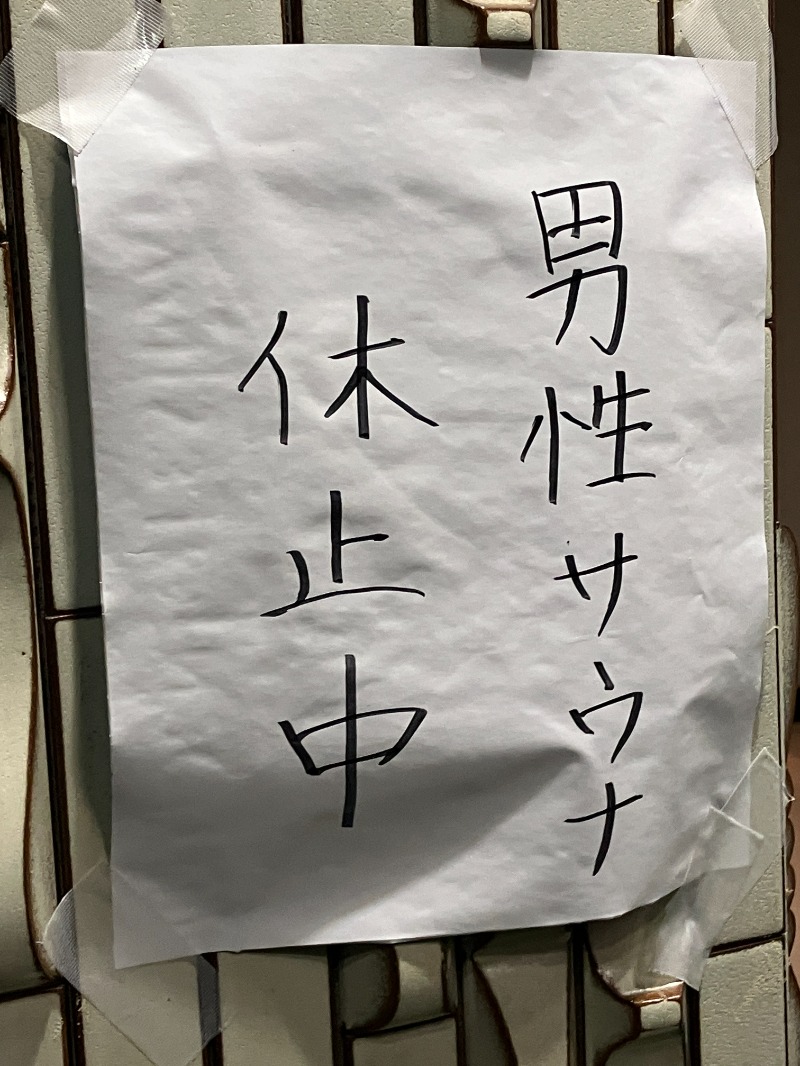 男性サウナ
休止中